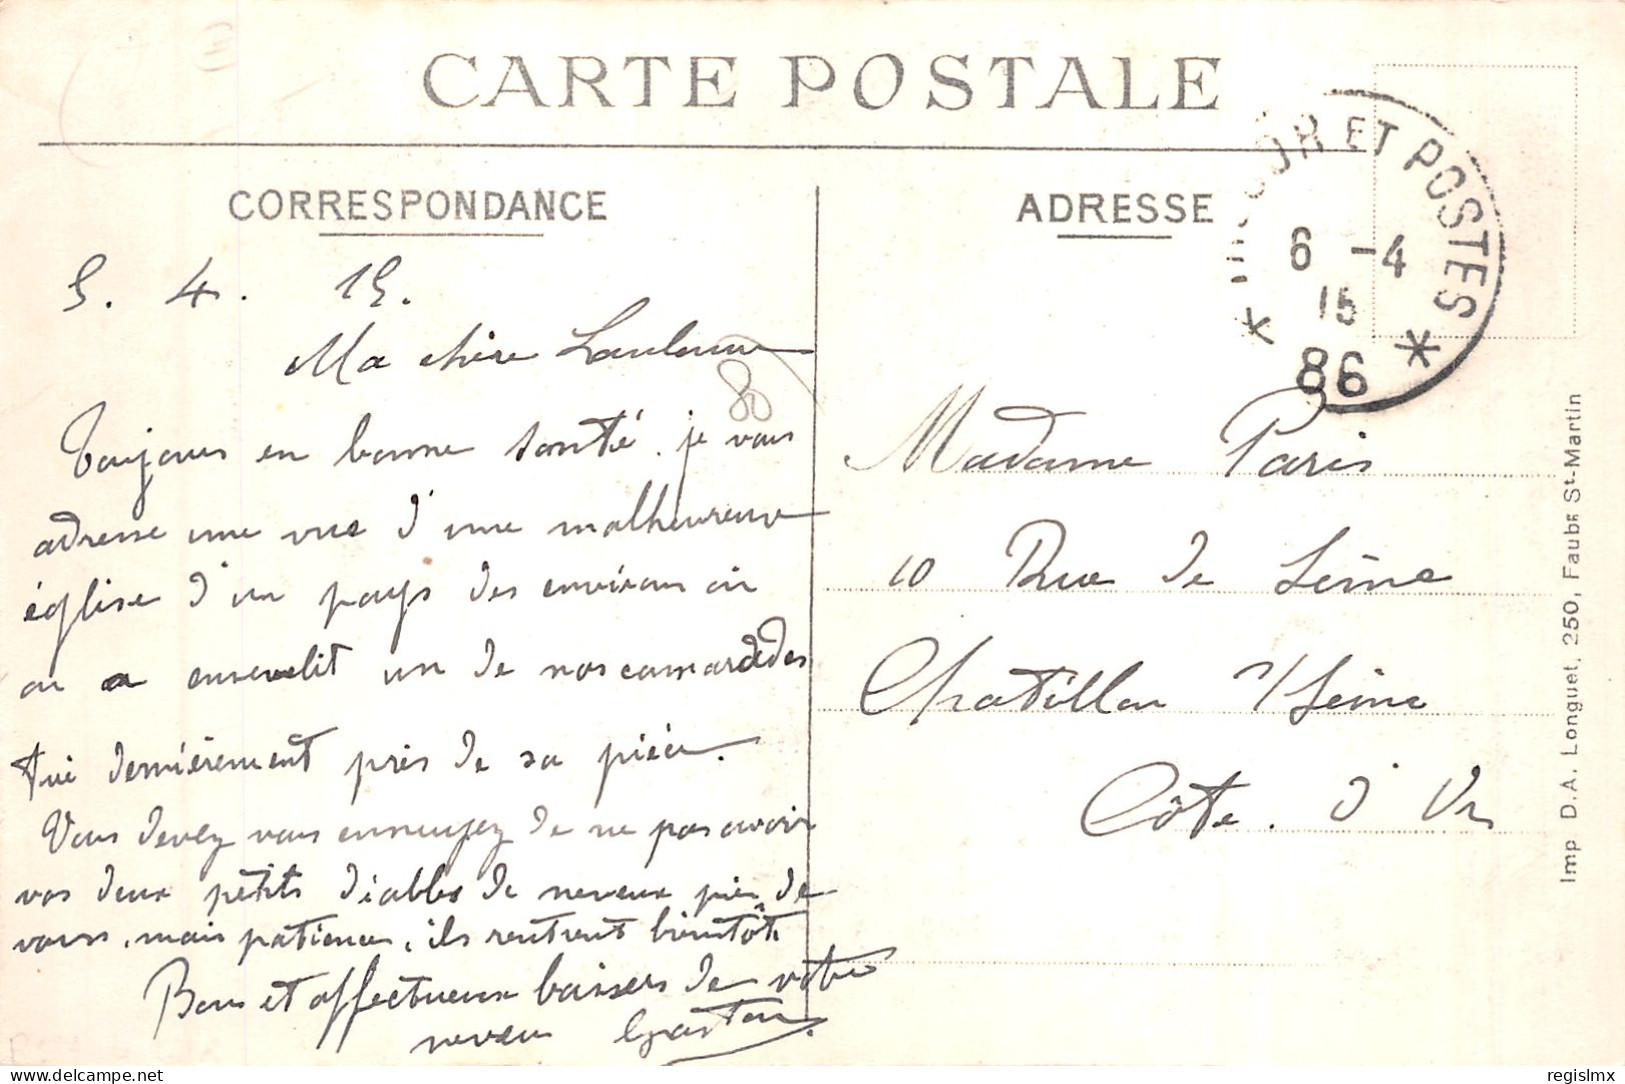 CARTE POSTALE
CORRESPONDANCE
5. 4. 15.
Ma chère
Toujours en bonne santé. je vous
adresse une vue d'une malheureuse
église d'un pays des environs où
on a enseveli un de nos camarades
tué dernièrement près de sa pièce.
Vous devez vous ennuyez de ne pas avoir
vos deux petits diables de neveux près de
vous, mais patience, ils rentront bientôt
Bons et affectueux baisers de votre
neveu Gaston
80
ADRESSE
TRÉSOR ET POSTES
6 -4
15
* 86 *
Madame Paris
10 Rue de Seine
Chatillon s/Seine
Côte. d'Or
Imp D.A. Longuet, 250, Faubg St-Martin
regislmx